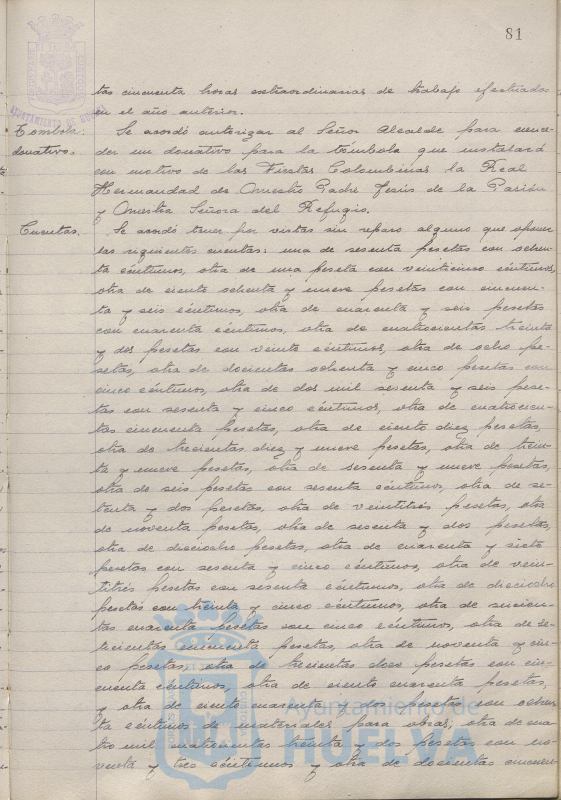 81
AYUNTAMIENTO DE HUELVA
tas cincuenta horas extraordinarias de trabajo efectuadas
en el año anterior.
Tómbola. Se acordó autorizar al Señor Alcalde para conce-
donativo. der un donativo para la tómbola que instalará
con motivo de las Fiestas Colombinas la Real
Hermandad de Nuestro Padre Jesús de la Pasión
y Nuestra Señora del Refugio.
Cuentas. Se acordó tener por vistas sin reparo alguno que oponer
las siguientes cuentas: una de sesenta pesetas con ochen-
ta céntimos, otra de una peseta con veinticinco céntimos,
otra de ciento ochenta y nueve pesetas con cincuen-
ta y seis céntimos, otra de cuarenta y seis pesetas
con cuarenta céntimos, otra de cuatrocientas treinta
y dos pesetas con veinte céntimos, otra de ocho pe-
setas, otra de doscientas ochenta y cinco pesetas con
cinco céntimos, otra de dos mil sesenta y seis pese-
tas con sesenta y cinco céntimos, otra de cuatrocien-
tas cincuenta pesetas, otra de ciento diez pesetas,
otra de trescientas diez y nueve pesetas, otra de trein-
ta y nueve pesetas, otra de sesenta y nueve pesetas,
otra de seis pesetas con sesenta céntimos, otra de se-
tenta y dos pesetas, otra de veintitrés pesetas, otra
de noventa pesetas, otra de sesenta y dos pesetas,
otra de dieciocho pesetas, otra de cuarenta y siete
pesetas con sesenta y cinco céntimos, otra de vein-
titrés pesetas con sesenta céntimos, otra de dieciocho
pesetas con treinta y cinco céntimos, otra de
tas cuarenta pesetas con cinco céntimos, otra de se-
tecientas cincuenta pesetas, otra de noventa y cin-
co pesetas, otra de trescientas doce pesetas con cin-
cuenta céntimos, otra de ciento cuarenta pesetas,
y otra de ciento cuarenta y dos pesetas con ochen-
ta céntimos, de materiales para obras; otra de cua-
tro mil cuatrocientas treinta y dos pesetas con no-
venta y tres céntimos y otra de doscientas cincuen-
Ayuntamiento de
HUELVA